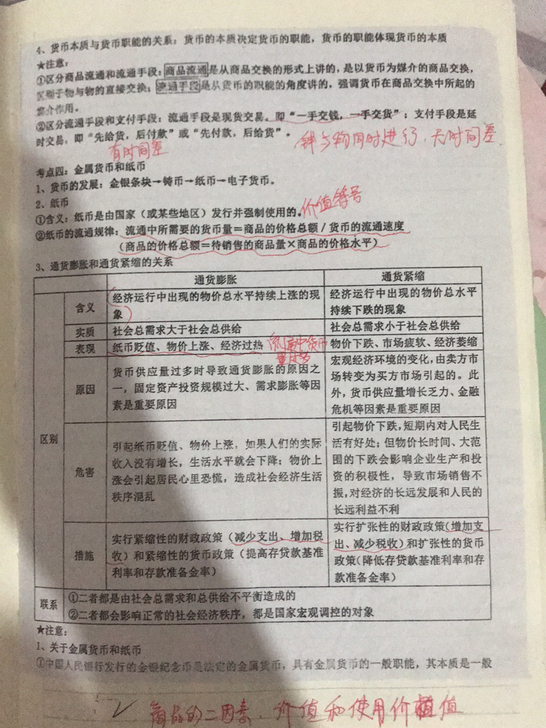 4、货币本质与货币职能的关系：货币的本质决定货币的职能，货币的职能体现货币的本质
★注意：
①区分商品流通和流通手段：商品流通是从商品交换的形式上讲的，是以货币为媒介的商品交换，
区别于物与物的直接交换；流通手段是从货币的职能的角度讲的，强调货币在商品交换中所起的
媒介作用。
②区分流通手段和支付手段：流通手段是现货交易，即“一手交钱，一手交货”；支付手段是延
时交易，即“先给货，后付款”或“先付款，后给货”。
钱与物同时进行，无时间差。
有时间差
考点四：金属货币和纸币
1、货币的发展：金银条块→铸币→纸币→电子货币。
2、纸币
①含义：纸币是由国家（或某些地区）发行并强制使用的。
价值符号
②纸币的流通规律：流通中所需要的货币量=商品的价格总额/货币的流通速度
（商品的价格总额=待销售的商品量×商品的价格水平）
3、通货膨胀和通货紧缩的关系
通货膨胀 通货紧缩
区别
含义
经济运行中出现的物价总水平持续上涨的现
象
经济运行中出现的物价总水平
持续下跌的现象
实质
社会总需求大于社会总供给
社会总需求小于社会总供给
表现
纸币贬值、物价上涨、经济过热
流通中货币
量过多
物价下跌、市场疲软、经济萎缩
原因
货币供应量过多时导致通货膨胀的原因之
一，固定资产投资规模过大、需求膨胀等因
素是重要原因
宏观经济环境的变化，由卖方市
场转变为买方市场引起的。此
外，货币供应量增长乏力、金融
危机等因素是重要原因
危害
引起纸币贬值、物价上涨，如果人们的实际
收入没有增长，生活水平就会下降；物价上
涨会引起居民心里恐慌，造成社会经济生活
秩序混乱
引起物价下跌，短期内对人民生
活有好处；但物价长时间、大范
围的下跌会影响企业生产和投
资的积极性，导致市场销售不
振，对经济的长远发展和人民的
长远利益不利
措施
实行紧缩性的财政政策（减少支出、增加税
收）和紧缩性的货币政策（提高存贷款基准
利率和存款准备金率）
实行扩张性的财政政策（增加支
出、减少税收）和扩张性的货币
政策（降低存贷款基准利率和存
款准备金率）
联系
①二者都是由社会总需求和总供给不平衡造成的
②二者都会影响正常的社会经济秩序，都是国家宏观调控的对象
★注意：
1、关于金属货币和纸币
①中国人民银行发行的金银纪念币是法定的金属货币，具有金属货币的一般职能，其本质是一般
商品的二因素，价值和使用价值